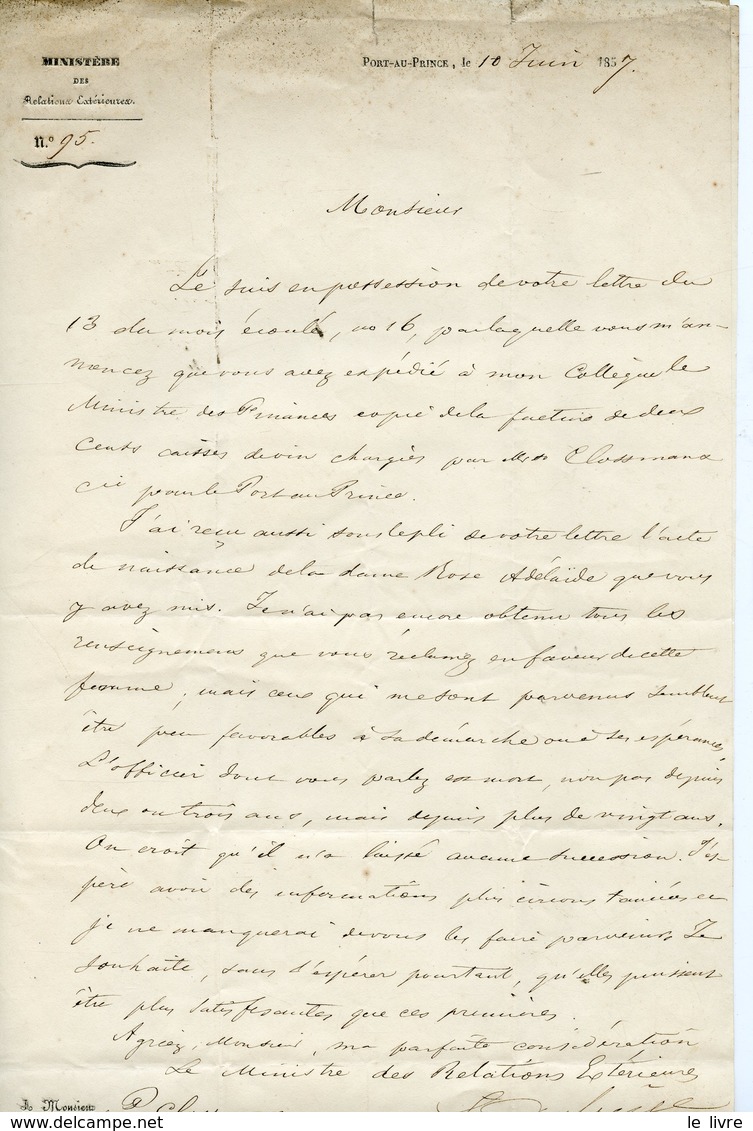 MINISTÈRE
DES
Relations Extérieures.
N.º 95.
PORT-AU-PRINCE, le 10 Juin 1857.
Monsieur
Je suis en possession de votre lettre du
13 du mois écoulé, no 16, par laquelle vous m'an-
noncez que vous avez expédié à mon Collègue le
Ministre des Finances copie de la facture de deux
cents caisses de vin chargées par Mrs Clossmann
& Cie pour le Port au Prince.
J'ai reçu aussi sous le pli de votre lettre l'acte
de naissance de la dame Rose Adélaïde que vous
y avez mis. Je n'ai pas encore obtenu tous les
renseignemens que vous réclamez en faveur de cette
femme, mais ceux qui me sont parvenus semblent
être peu favorables à sa démarche ou à ses espérances.
L'officier dont vous parlez est mort, non pas depuis
deux ou trois ans, mais depuis plus de vingt ans.
On croit qu'il n'a laissé aucune succession. J'es-
père avoir des informations plus circonstanciées et
je ne manquerai de vous les faire parvenir. Je
souhaite, sans l'espérer pourtant, qu'elles puissent
être plus satisfesantes que ces premières.
Agréez, Monsieur, ma parfaite considération
Le Ministre des Relations Extérieures
A Monsieur
le livre